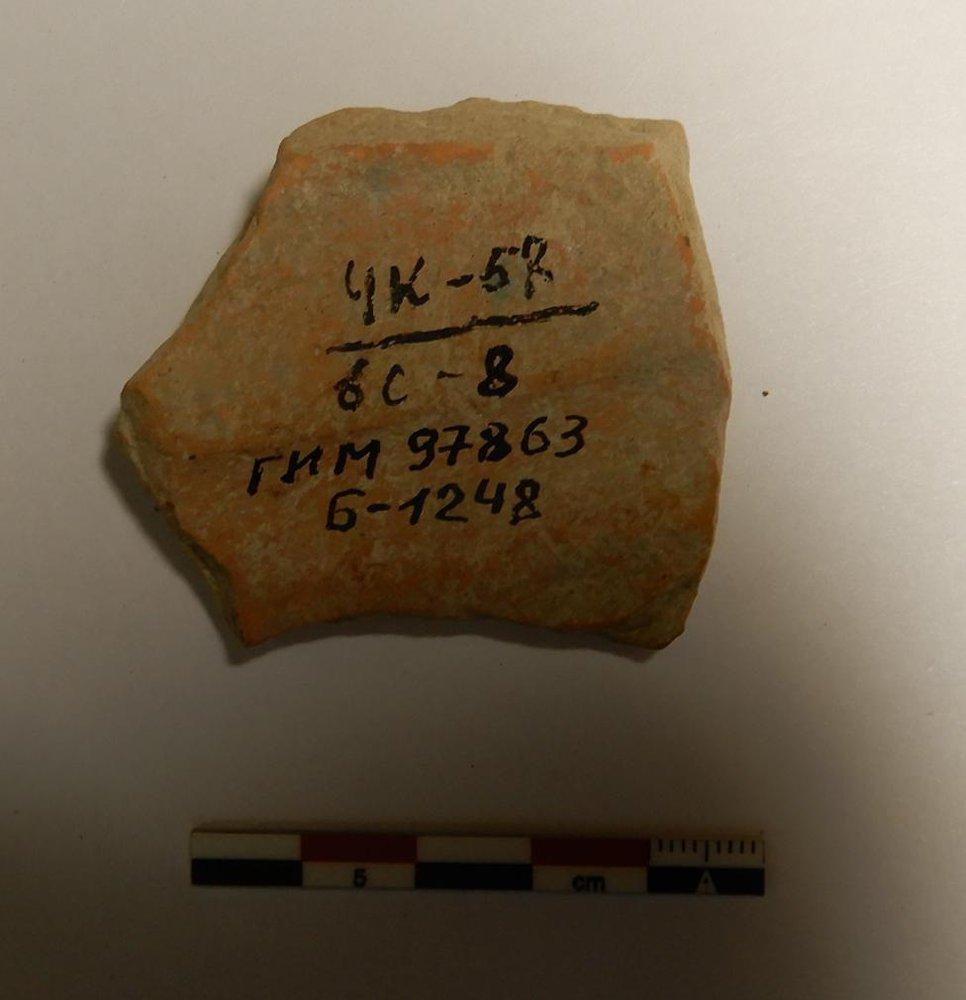 ЧК-57
8С-8
ГИМ 97863
Б-1248
5 cm